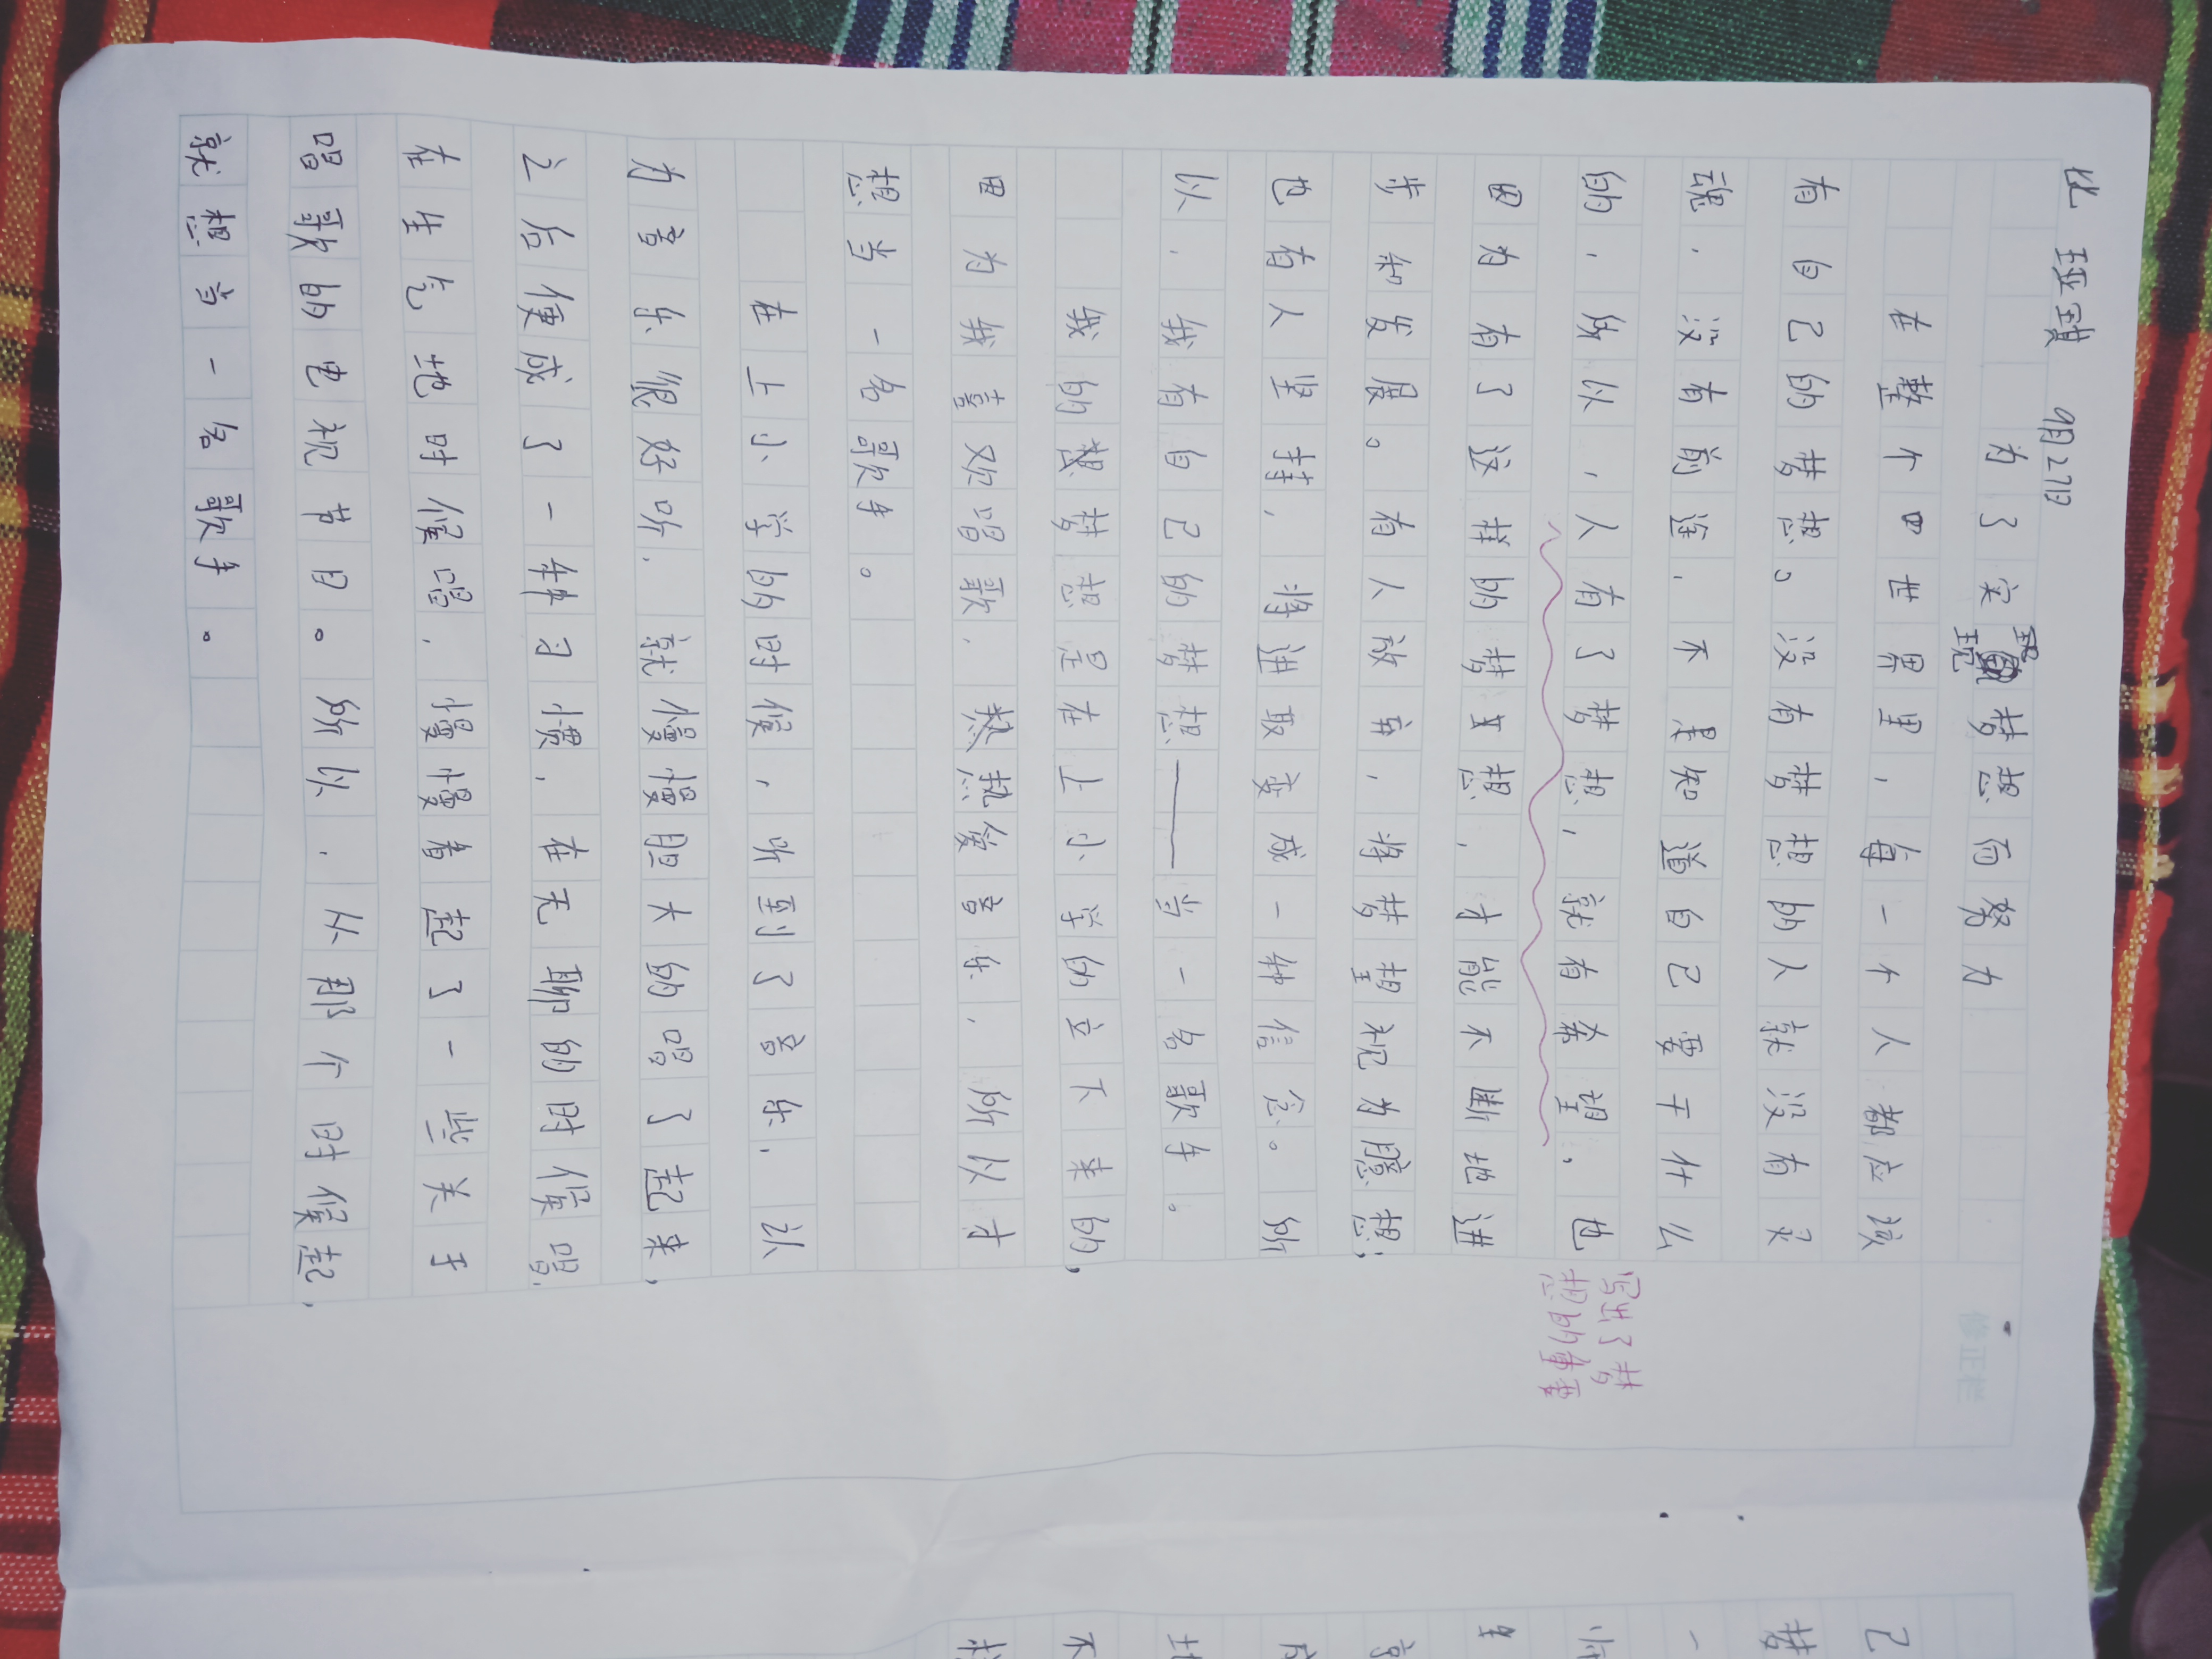 9月27日
为了实现梦想而努力
在整个世界里，每一个人都应该
有自己的梦想。没有梦想的人就没有灵
魂，没有前途，不是知道自己要干什么
的，所以，人有了梦想，就有希望，也
因为有了这样的梦想，才能不断地进
步和发展。有人放弃，将梦想视为臆想；
也有人坚持，将进取变成一种信念。所
以，我有自己的梦想——当一名歌手。
我的梦想是在上小学的立下来的，
因为我喜欢唱歌，热爱音乐，所以才
想当一名歌手。
在上小学的时候，听到了音乐，认
为音乐很好听，就慢慢胆大的唱了起来，
之后便成了一种习惯，在无聊的时候唱，
在生气地时候唱，慢慢看起了一些关于
唱歌的电视节目。所以，从那个时候起，
就想当一名歌手。
写出了梦
想的重要
修正栏